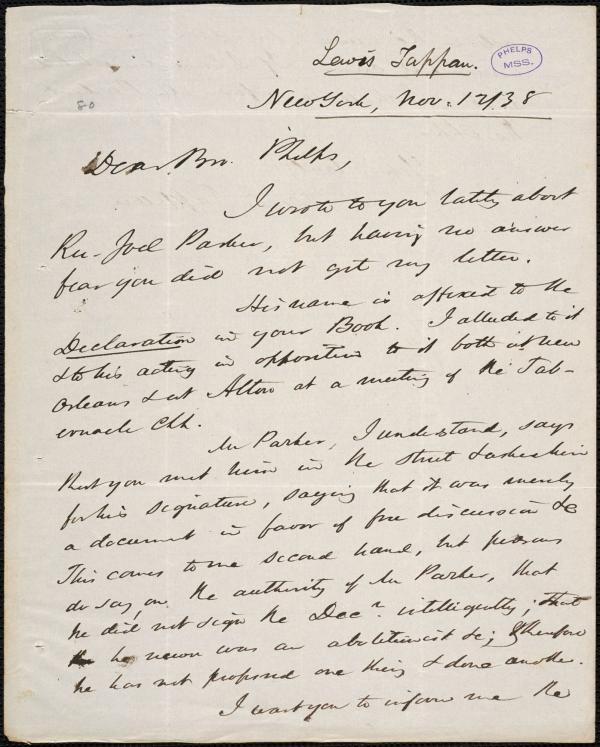 Lewis Tappan.
PHELPS
MSS.
80
New York, Nov. 12/38
Dear Bro. Phelps,
I wrote to you lately about
Rev. Joel Parker, but having no answer
fear you did not get my letter.
His name is affixed to the
Declaration in your Book. I alluded to it
& to his acting in opposition to it both at New
Orleans & at Alton at a meeting of the Tab-
ernacle Chh.
Mr Parker, I understand, says
that you met him in the street & asked him
for his signature, saying that it was merely
a document in favor of free discussion &c
This comes to me second hand, but persons
do say, on the authority of Mr Parker, that
he did not sign the Decn. intelligently; that
he never was an abolitionist &c; & therefore
he has not professed one thing & done another.
I want you to inform me the